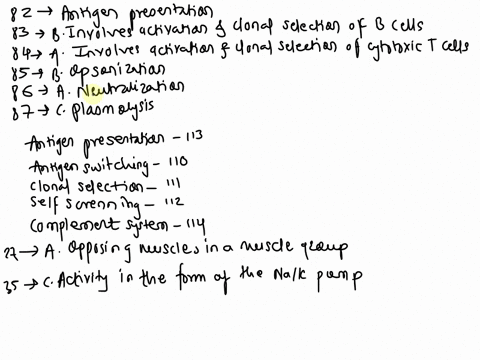 82 → Antigen presentation
83 → B. Involves activation & clonal selection of B cells
84 → A. Involves activation & clonal selection of cytotoxic T cells
85 → B. Opsonization
86 → A. Neutralization
87 → C. Plasmolysis
Antigen presentation - 113
Antigen switching - 110
Clonal selection - 111
Self screnning - 112
Complement system - 114
27 → A. Opposing muscles in a muscle group
35 → C. Activity in the form of the Na/K pump